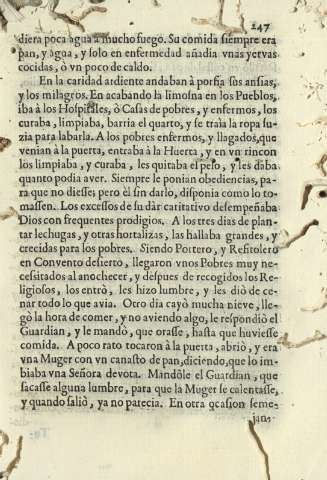 247
diera poca agua a mucho fuego. Su comida siempre era
pan, y agua, y solo en enfermedad añadia vnas yervas
cocidas, ò vn poco de caldo.
En la caridad ardiente andaban à porfia sus ansias,
y los milagros. En acabando la limosna en los Pueblos,
iba à los Hospitales, ò Casas de pobres, y enfermos, los
curaba, limpiaba, barria el quarto, y se traìa la ropa su-
zia para labarla. A los pobres enfermos, y llagados, que
venian à la puerta, entraba à la Huerta, y en vn rincon
los limpiaba, y curaba, les quitaba el peso, y les daba
quanto podia aver. Siempre le ponian obediencias, pa-
ra que no diesse; pero èl sin darlo, disponia como lo to-
massen. Los excessos de su dàr caritativo desempeñaba
Dios con frequentes prodigios. A los tres dias de plan-
tar lechugas, y otras hortalizas, las hallaba grandes, y
crecidas para los pobres. Siendo Portero, y Refitolero
en Convento desierto, llegaron vnos Pobres muy ne-
cessitados al anochecer, y despues de recogidos los Re-
ligiosos, los entrò, les hizo lumbre, y les diò de ce-
nar todo lo que avia. Otro dia cayò mucha nieve, lle-
gò la hora de comer, y no aviendo algo, le respondiò el
Guardian, y le mandò, que orasse, hasta que huviesse
comida. A poco rato tocaron à la puerta, abriò, y era
vna Muger con vn canasto de pan, diciendo, que lo im-
biaba vna Señora devota. Mandòle el Guardian, que
sacasse alguna lumbre, para que la Muger se calentasse,
y quando saliò, ya no parecia. En otra ocasion seme-
jan-